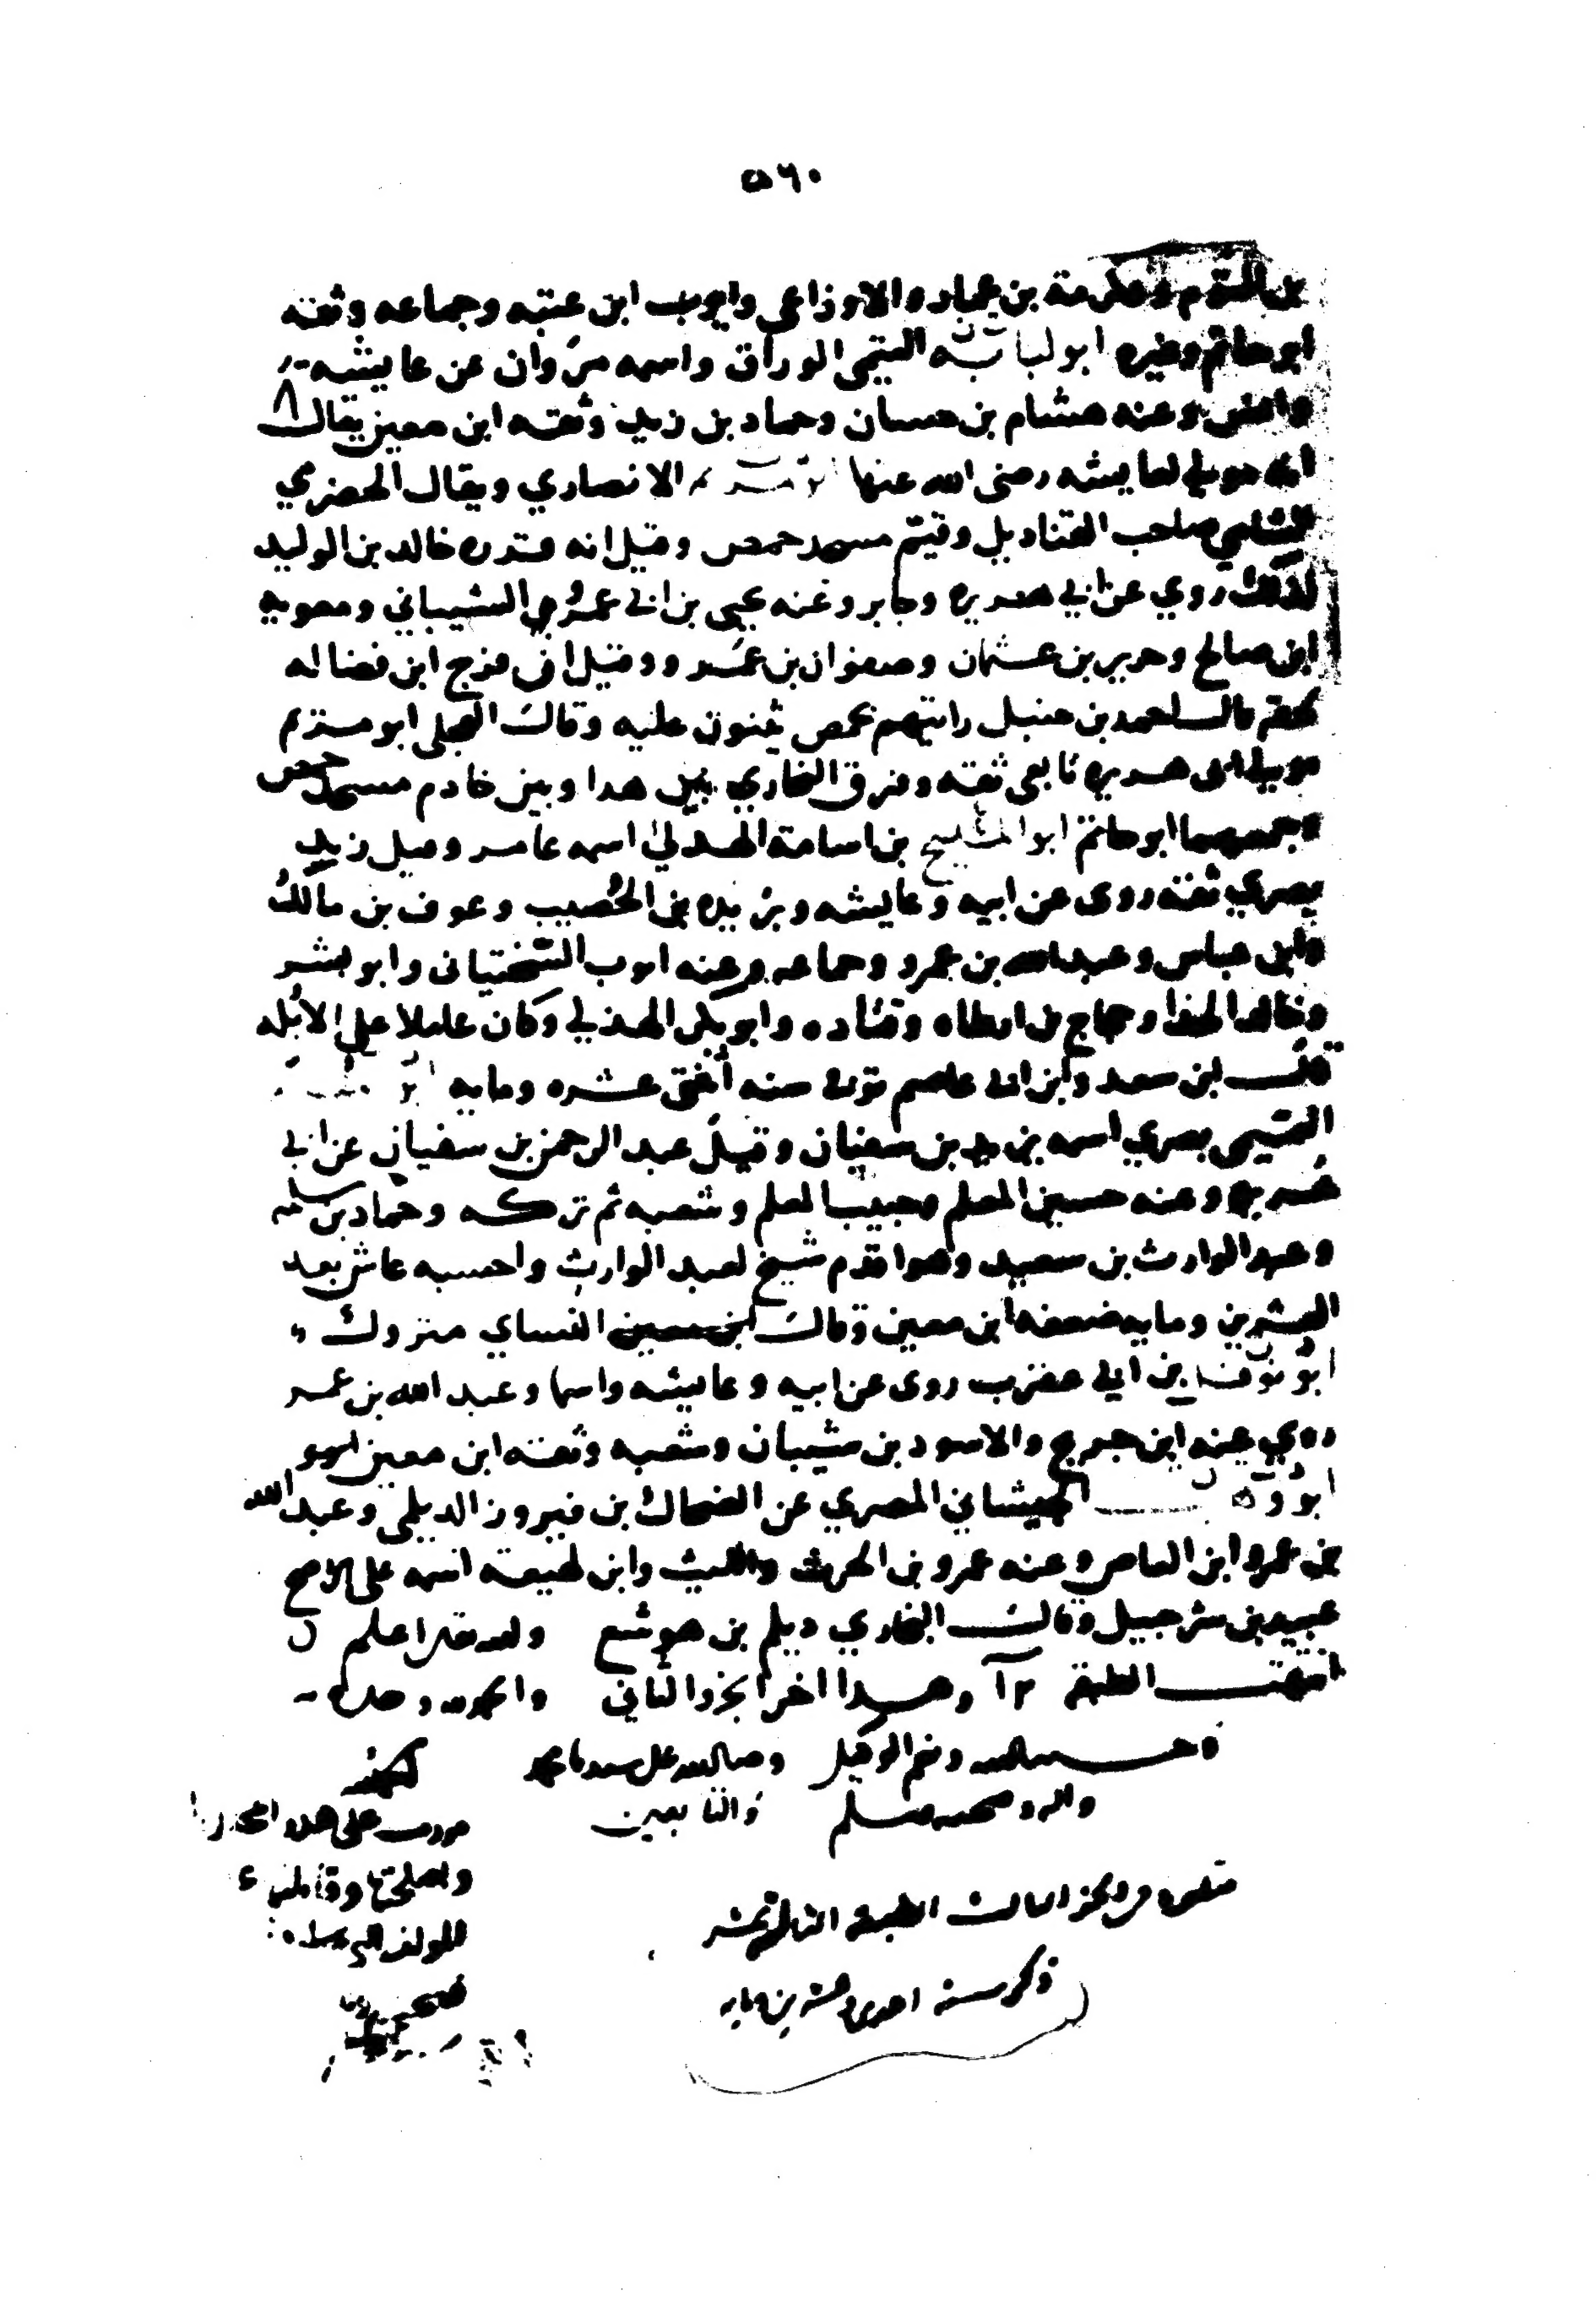 ٥٦٠
وعكرمة بن عمار والاوزاعي وايوب ابن عتبه وجماعه وثقه
ابو حاتم وغيره ابو لبابة التيمي الوراق واسمه مروان عن عايشه
وانس وعنه هشام بن حسان وحماد بن زيد وثقه ابن معين يقال
انه مولي لعايشه رضى الله عنها الانصاري ويقال الحضرمي
الشامي صاحب القناديل وقيم مسجد حمص وقيل انه قدره خالد بن الوليد
لذلك روي عن ابي هريره وجابر وعنه يحيى بن ابي عمرو الشيباني ومعويه
ابن صالح وحرير بن عثمان وصفوان بن عمرو وقيل ان فرج ابن فضاله
لحقه قال احمد بن حنبل رايتهم بحمص يثنون عليه وقال العجلى ابو مريم
مولي ابى هريره تابعى ثقه وفرق البخاري بين هدا وبين خادم مسجد حمص
وجمعهما ابو حاتم ابو المليح بن اسامة الهدلي اسمه عامر وقيل زيد
بصري ثقه روى عن ابيه وعايشه وبريده بن الحُصيب وعوف بن مالك
وابن عباس وعبد الله بن عمرو وجماعه وعنه ايوب السختيانى وابو بشر
وخالد الحذا وحجاج بن ارطاه وقتاده وابو بكر الهذلي وكان عاملا على الابُله
قال ابن سعد وابن ابى عاصم توفى سنه اثنتى عشره ومايه
التميمى بصري اسمه يزيد بن سفيان وقيل عبد الرحمن بن سفيان عن ابي
هريره وعنه حسين المعلم وحبيب المعلم وشعبه ثم تركه وحماد بن سلمه
وعبد الوارث بن سعيد وهو اقدم شيخ لعبد الوارث واحسبه عاش بعد
العشرين ومايه ضعفه ابن معين وقال ابن معين النساي متروك
ابو نوفل بن ابي عقرب روى عن ابيه وعايشه واسما وعبد الله بن عمر
روي عنه ابن جريج والاسود بن شيبان وشعبه وثقه ابن معين
ابو وهب الجيشاني المصري عن الضحاك بن فيروز الديلمى وعبد الله
بن عمرو ابن العاص وعنه عمرو بن الحرث والليث وابن لهيعه اسمه على الاصح
عبيد بن شرحبيل وقال البخاري ديلم بن هوشع والله تعلا اعلم
انتهت الطبقه ١٢ وهدا اخر الجزو الثاني والحمد لله وحده
وحسبنا الله ونعم الوكيل وصلى الله على سيدنا محمد
واله وصحبه وسلم والتابعين
يتلوه في الجز الثالث الطبقه الثالثة عشر
ذكر سنه احدى وعشرين ومايه
مررت على هذا المجلد
واصلحته وقابلته
للمولف